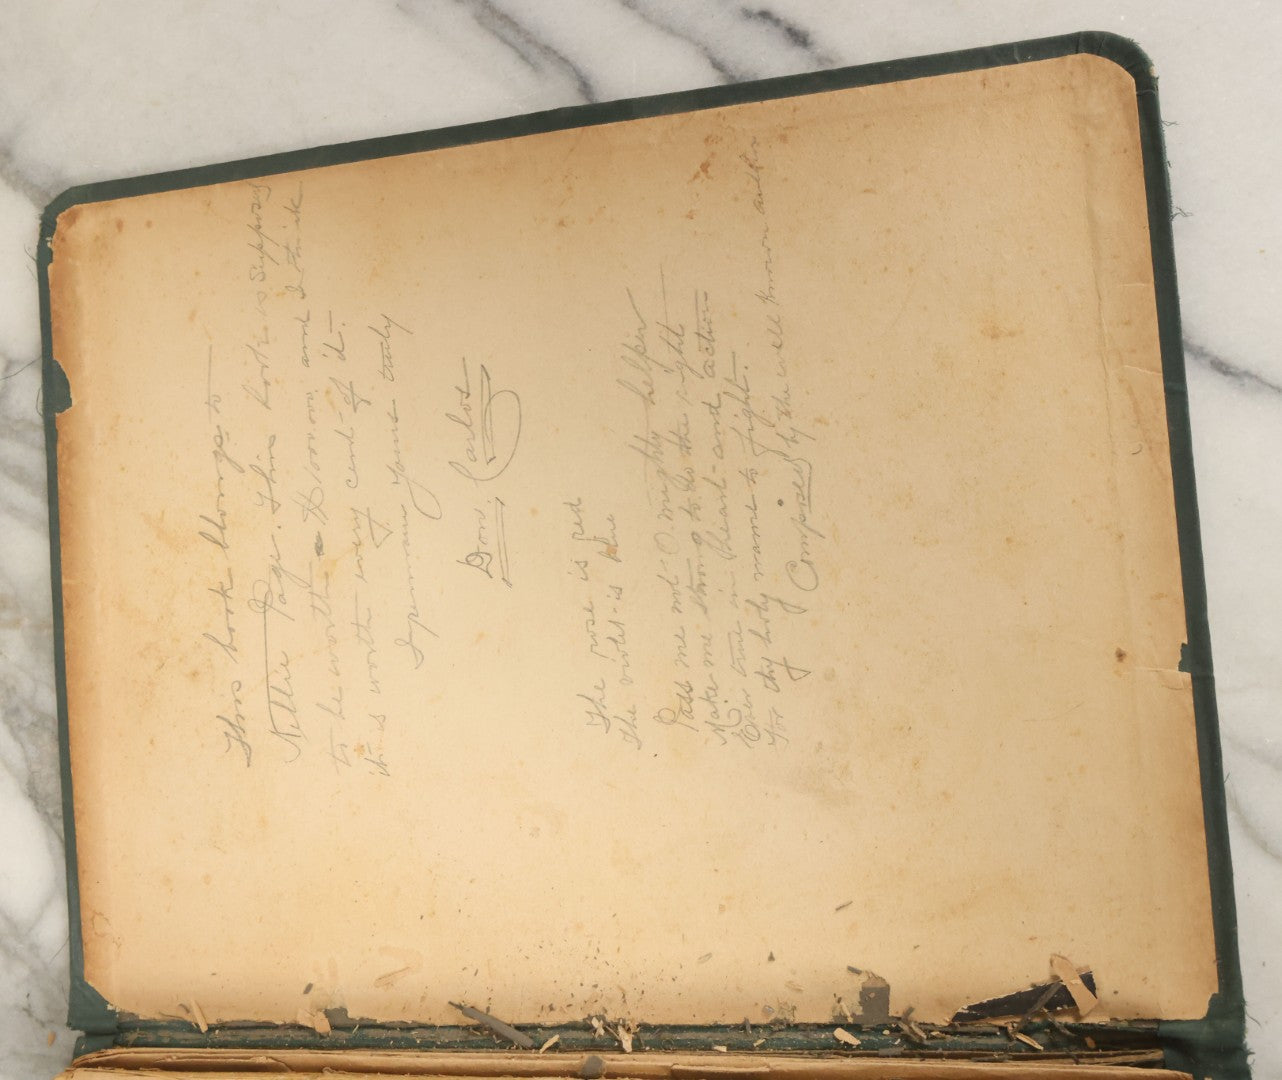 This book blongs to
Nettie Page. This book is Supposed
to be worth $1000.00 and I think
it is worth every cent of it.
I remain yours truly
Don Carlos
The rose is red
The violet is blue
Pass me not O mighty helper
Make me strong to do the right
Ever true in heart and action
For thy holy name to fight.
Composed by the well known author